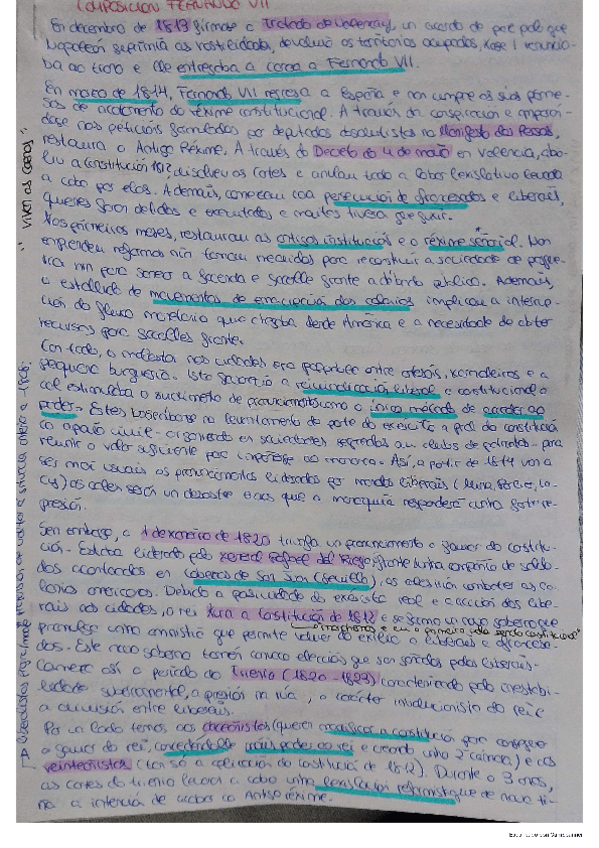 COMPOSICION FERNANDO VII
En decembro de 1813 firmase o Tratado de Valençay, un acordo de paz polo que
Napoleón suprimía as hostilidades, devolvía os territorios ocupados, Xose I renuncia-
ba ao trono e lle entregaba a coroa a Fernando VII.
En marzo de 1814, Fernando VII regresa a España e non cumpre as súas prome-
sas de acatamento do réxime constitucional. A través da conspiración e
nas peticións formuladas por deputados absolutistas no Manifesto dos Persas,
restaura o Antigo Réxime. A través do Decreto do 4 de maio en Valencia, abo-
liu a constitución 1812, disolveu as Cortes e anulou toda a labor lexislativa levada
a cabo por elas. Ademais, comezou coa persecución de afrancesados e liberais,
quenes foron detidos e executados e moitos tiveron que fuxir.
Nos primeiros meses, restauran as antigas institucións e o réxime señorial. Non
emprenden reformas nin toman medidas para reconstruír a sociedade de posgue-
rra nin para sanear a facenda e facerlle fronte a débeda pública. Ademais,
o estallido de movementos de emancipación das colonias implicou a interrup-
ción do fluxo monetario que chegaba dende América e a necesidade de obter
recursos para facerlles fronte.
Con todo, o malestar nas cidades era entre obreiros, xornaleiros e a
pequena burguesía. Isto favoreceu a reivindicación liberal e constitucional o
cal estimulaba o surximento de pronunciamentos como o único método de acceder ao
poder. Estes baseábanse no levantamento de parte do exército a prol da constitución
co apoio civil - organizado en sociedades segredas ou clubes de patriotas - para
reunir o valor suficiente para impoñerse ao monarca. Así, a partir de 1814 van a
ser moi usuais os pronunciamentos liderados por mandos liberais (Mina, Porlier, La-
cy) os cales serán un desastre e aos que a monarquía responderá cunha forte re-
presión.
Sen embargo, o 1 de xaneiro de 1820 triunfa un pronunciamento a favor da constitu-
ción. Estaba liderado polo xeneral Rafael del Riego, fronte dunha compañía de solda-
dos acantoados en Cabezas de San Juan (Sevilla), os ales ían combater as co-
lonias americanas. Debido a pasividade do exército real e a acción dos libe-
rais nas cidades, o rei xura a Constitución de 1812 e se forma un novo goberno que
"marchemos e eu o primeiro pola senda constitucional"
promulga unha amnistía que permite volver do exilio a liberais e afrancesa-
dos. Este novo goberno tamén convoca eleccións que son gañadas polos liberais.
Comeza así o período do Trienio (1820-1823) caracterizado pola inestabi-
lidade , a presión na rúa, o carácter involucionista do rei e
a división entre liberais.
Por un lado temos aos doceañistas (queren modificar a constitución para conseguir
o favor do rei, concedéndolle máis poder ao rei e creando unha 2ª cámara) e os
veinteañistas ( a aplicación da constitución de 1812). Durante os 3 anos,
as cortes do trienio levaron a cabo unha lexislación reformista que de novo ti-
ña a intención de acabar co Antigo Réxime.
" vivan as caenas "